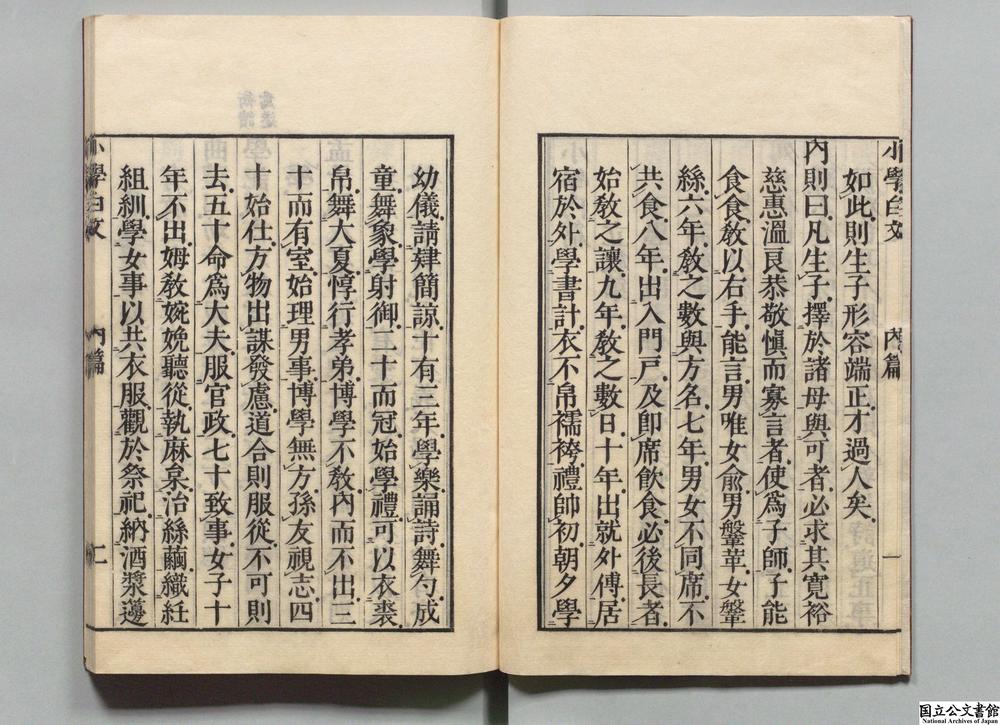 小學白文　內篇　一
如此則生子形容端正才過人矣
內則曰凡生子擇於諸母與可者必求其寬裕
慈惠溫良恭敬愼而寡言者使爲子師子能
食食敎以右手能言男唯女兪男鞶革女鞶
絲六年敎之數與方名七年男女不同席不
共食八年出入門戶及卽席飮食必後長者
始敎之讓九年敎之數日十年出就外傅居
宿於外學書計衣不帛襦袴禮帥初朝夕學
幼儀請肄簡諒十有三年學樂誦詩舞勺成
童舞象學射御二十而冠始學禮可以衣裘
帛舞大夏惇行孝弟博學不敎內而不出三
十而有室始理男事博學無方孫友視志四
十始仕方物出謀發慮道合則服從不可則
去五十命爲大夫服官政七十致事女子十
年不出姆敎婉娩聽從執麻枲治絲繭織紝
組紃學女事以共衣服觀於祭祀納酒漿籩
小學白文　內篇　二
国立公文書館
National Archives of Japan